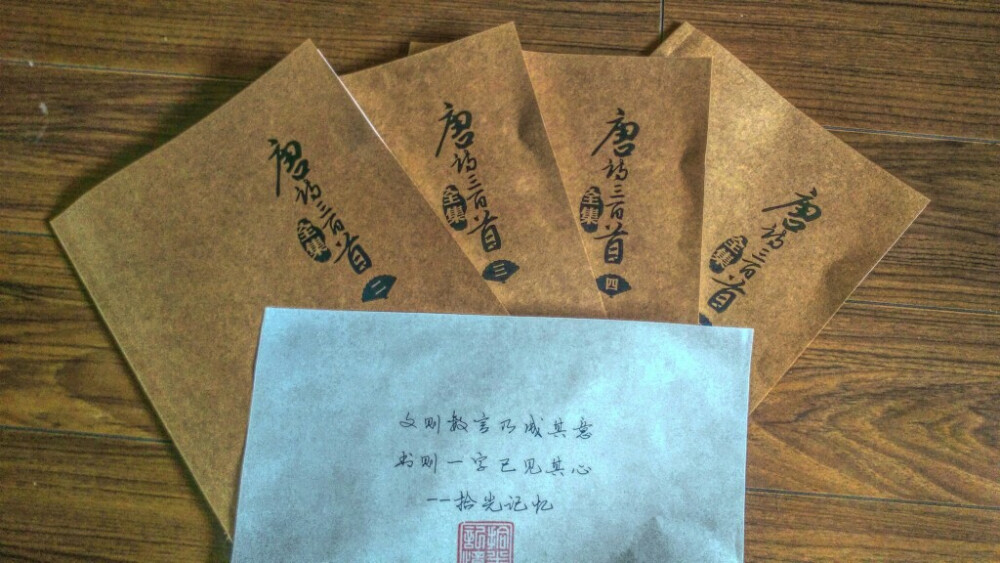 唐诗三百首
全集
二
唐诗三百首
全集
三
唐诗三百首
全集
四
唐诗三百首
全集
文则数言乃成其意
书则一字已见其心
--拾光记忆